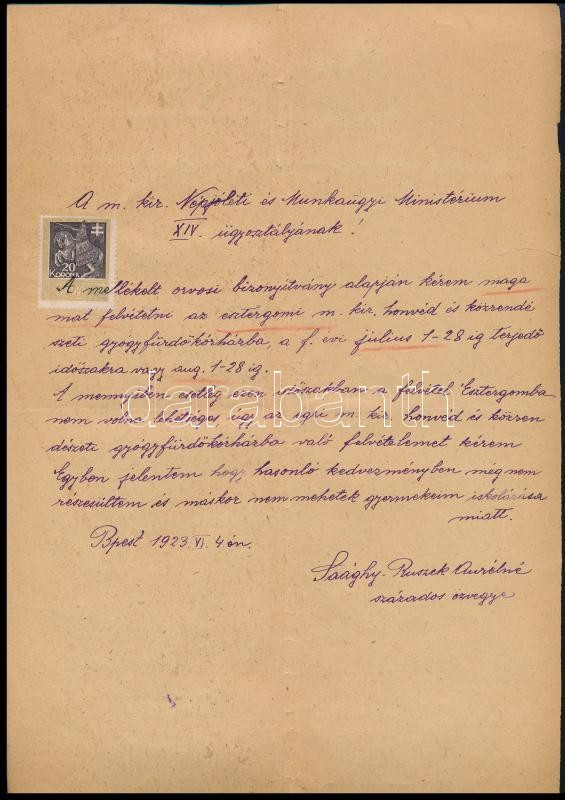 A m. kir. Népjóléti és Munkaügyi Ministérium
XIV. ügyosztályának!
20
KORONA
A mellékelt orvosi bizonyítvány alapján kérem maga
mat felvétetni az esztergomi m. kir. honvéd és közrendé
szeti gyógyfürdőkórházba, a f. évi július 1-28 ig terjedő
időszakra vagy aug. 1-28 ig.
A mennyiben esetleg ezen időszakban a felvétel Esztergomba
nem volna lehetséges úgy az egri m. kir. honvéd és közren
dészeti gyógyfürdőkórházba való felvételemet kérem
Egyben jelentem hogy hasonló kedvezményben még nem
részesültem és máskor nem mehetek gyermekeim iskolázása
miatt.
Bpest 1923. VI. 4 én.
Saághy-Ruszek Aurélné
százados özvegye
darabanth